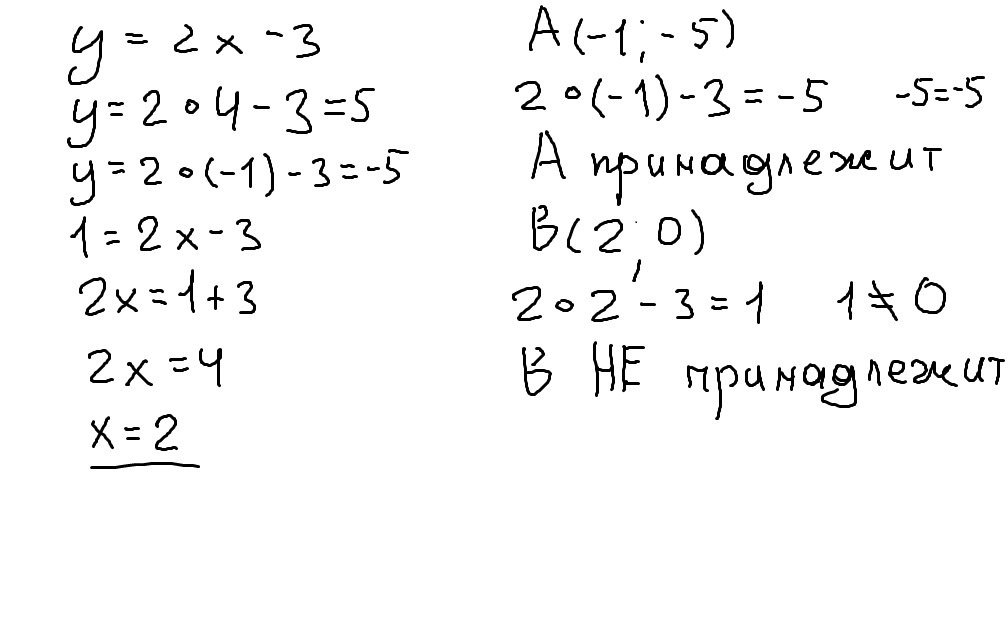 y = 2x - 3
y = 2 ∘ 4 - 3 = 5
y = 2 ∘ (-1) - 3 = -5
1 = 2x - 3
2x = 1 + 3
2x = 4
x = 2
A (-1; -5)
2 ∘ (-1) - 3 = -5 -5 = -5
A принадлежит
B (2; 0)
2 ∘ 2 - 3 = 1 1 ≠ 0
B НЕ принадлежит